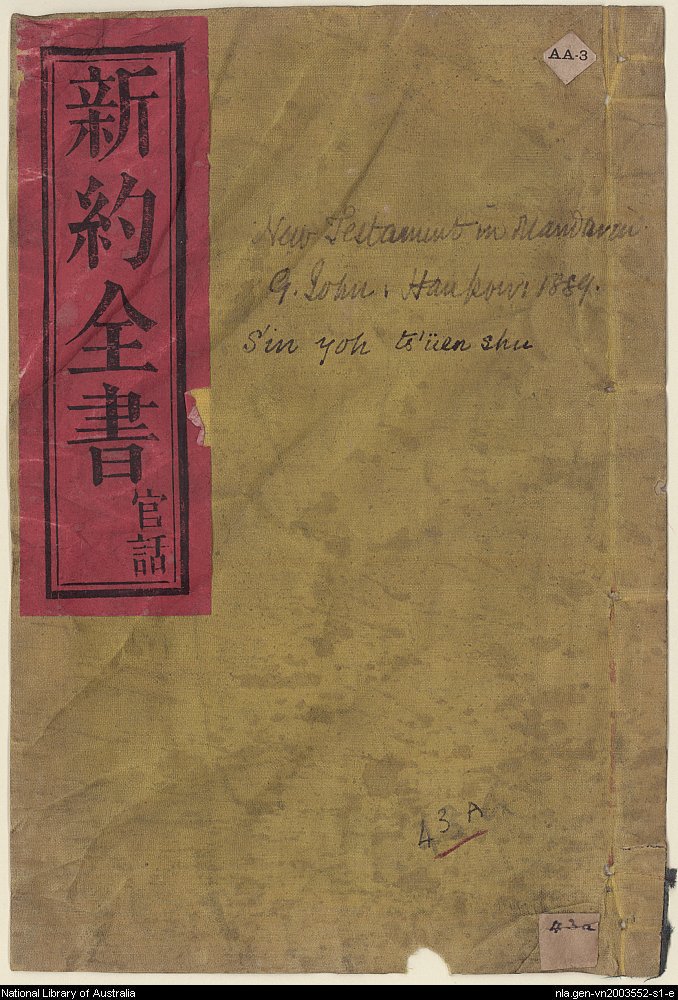 新約全書
官話
AA-3
New Testament in Mandarin.
G. John: Hankow: 1889.
S'in yoh ts'üen shu
43A
43a
National Library of Australia
nla.gen-vn2003552-s1-e